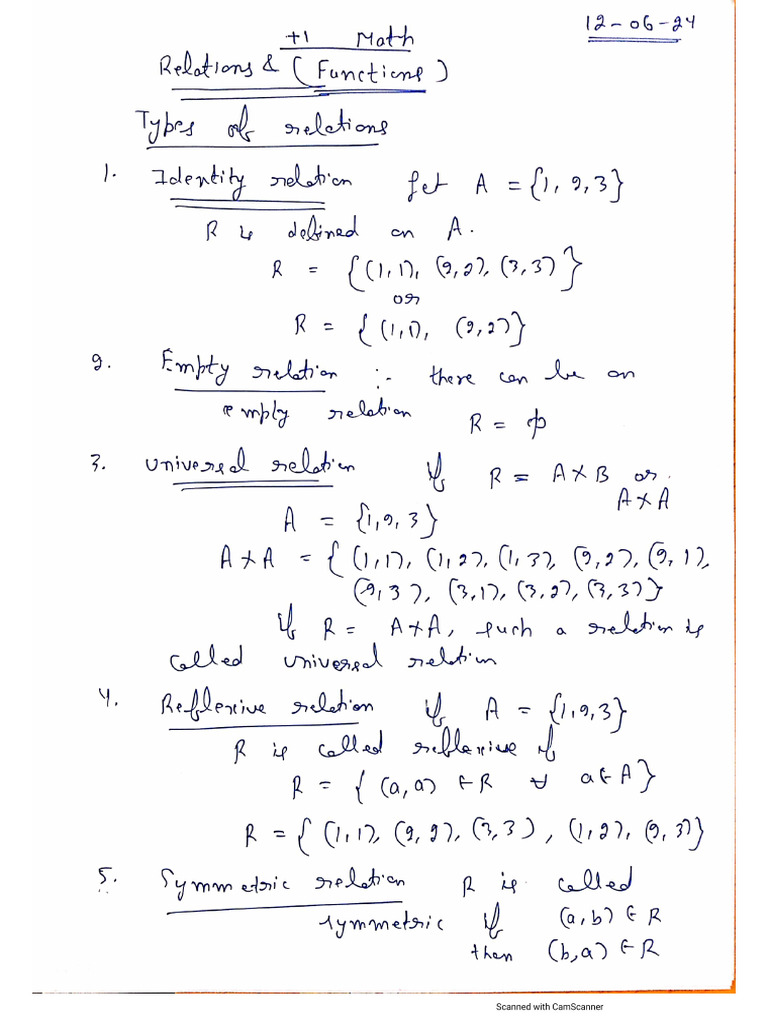 12-06-24
+1 Math
Relations & (Functions)
Types of relations
1. Identity relation Let A = {1, 2, 3}
R is defined on A.
R = {(1,1), (2,2), (3,3)}
or
R = {(1,1), (2,2)}
2. Empty relation :- there can be an
empty relation R = ϕ
3. Universal relation If R = A×B or
A×A
A = {1,2,3}
A×A = {(1,1), (1,2), (1,3), (2,2), (2,1),
(2,3), (3,1), (3,2), (3,3)}
If R = A×A, such a relation is
called universal relation
4. Reflexive relation If A = {1,2,3}
R is called reflexive if
R = {(a,a) ∈ R ∀ a ∈ A}
R = {(1,1), (2,2), (3,3), (1,2), (2,3)}
5. Symmetric relation R is called
symmetric if (a,b) ∈ R
then (b,a) ∈ R
Scanned with CamScanner